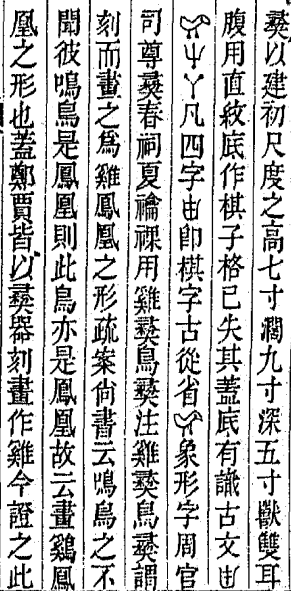 彝以建初尺度之高七寸濶九寸深五寸獸雙耳
腹用直紋底作棋子格已失其蓋底有識古文
凡四字甶卽棋字古從省象形字周官
司尊彝春祠夏禴祼用雞彝鳥彝注雞彝鳥彝謂
刻而畫之爲雞鳳凰之形疏案尙書云鳴鳥之不
聞彼鳴鳥是鳳凰則此鳥亦是鳳凰故云畫鷄鳳
凰之形也蓋鄭賈皆以彝器刻畫作雞今證之此